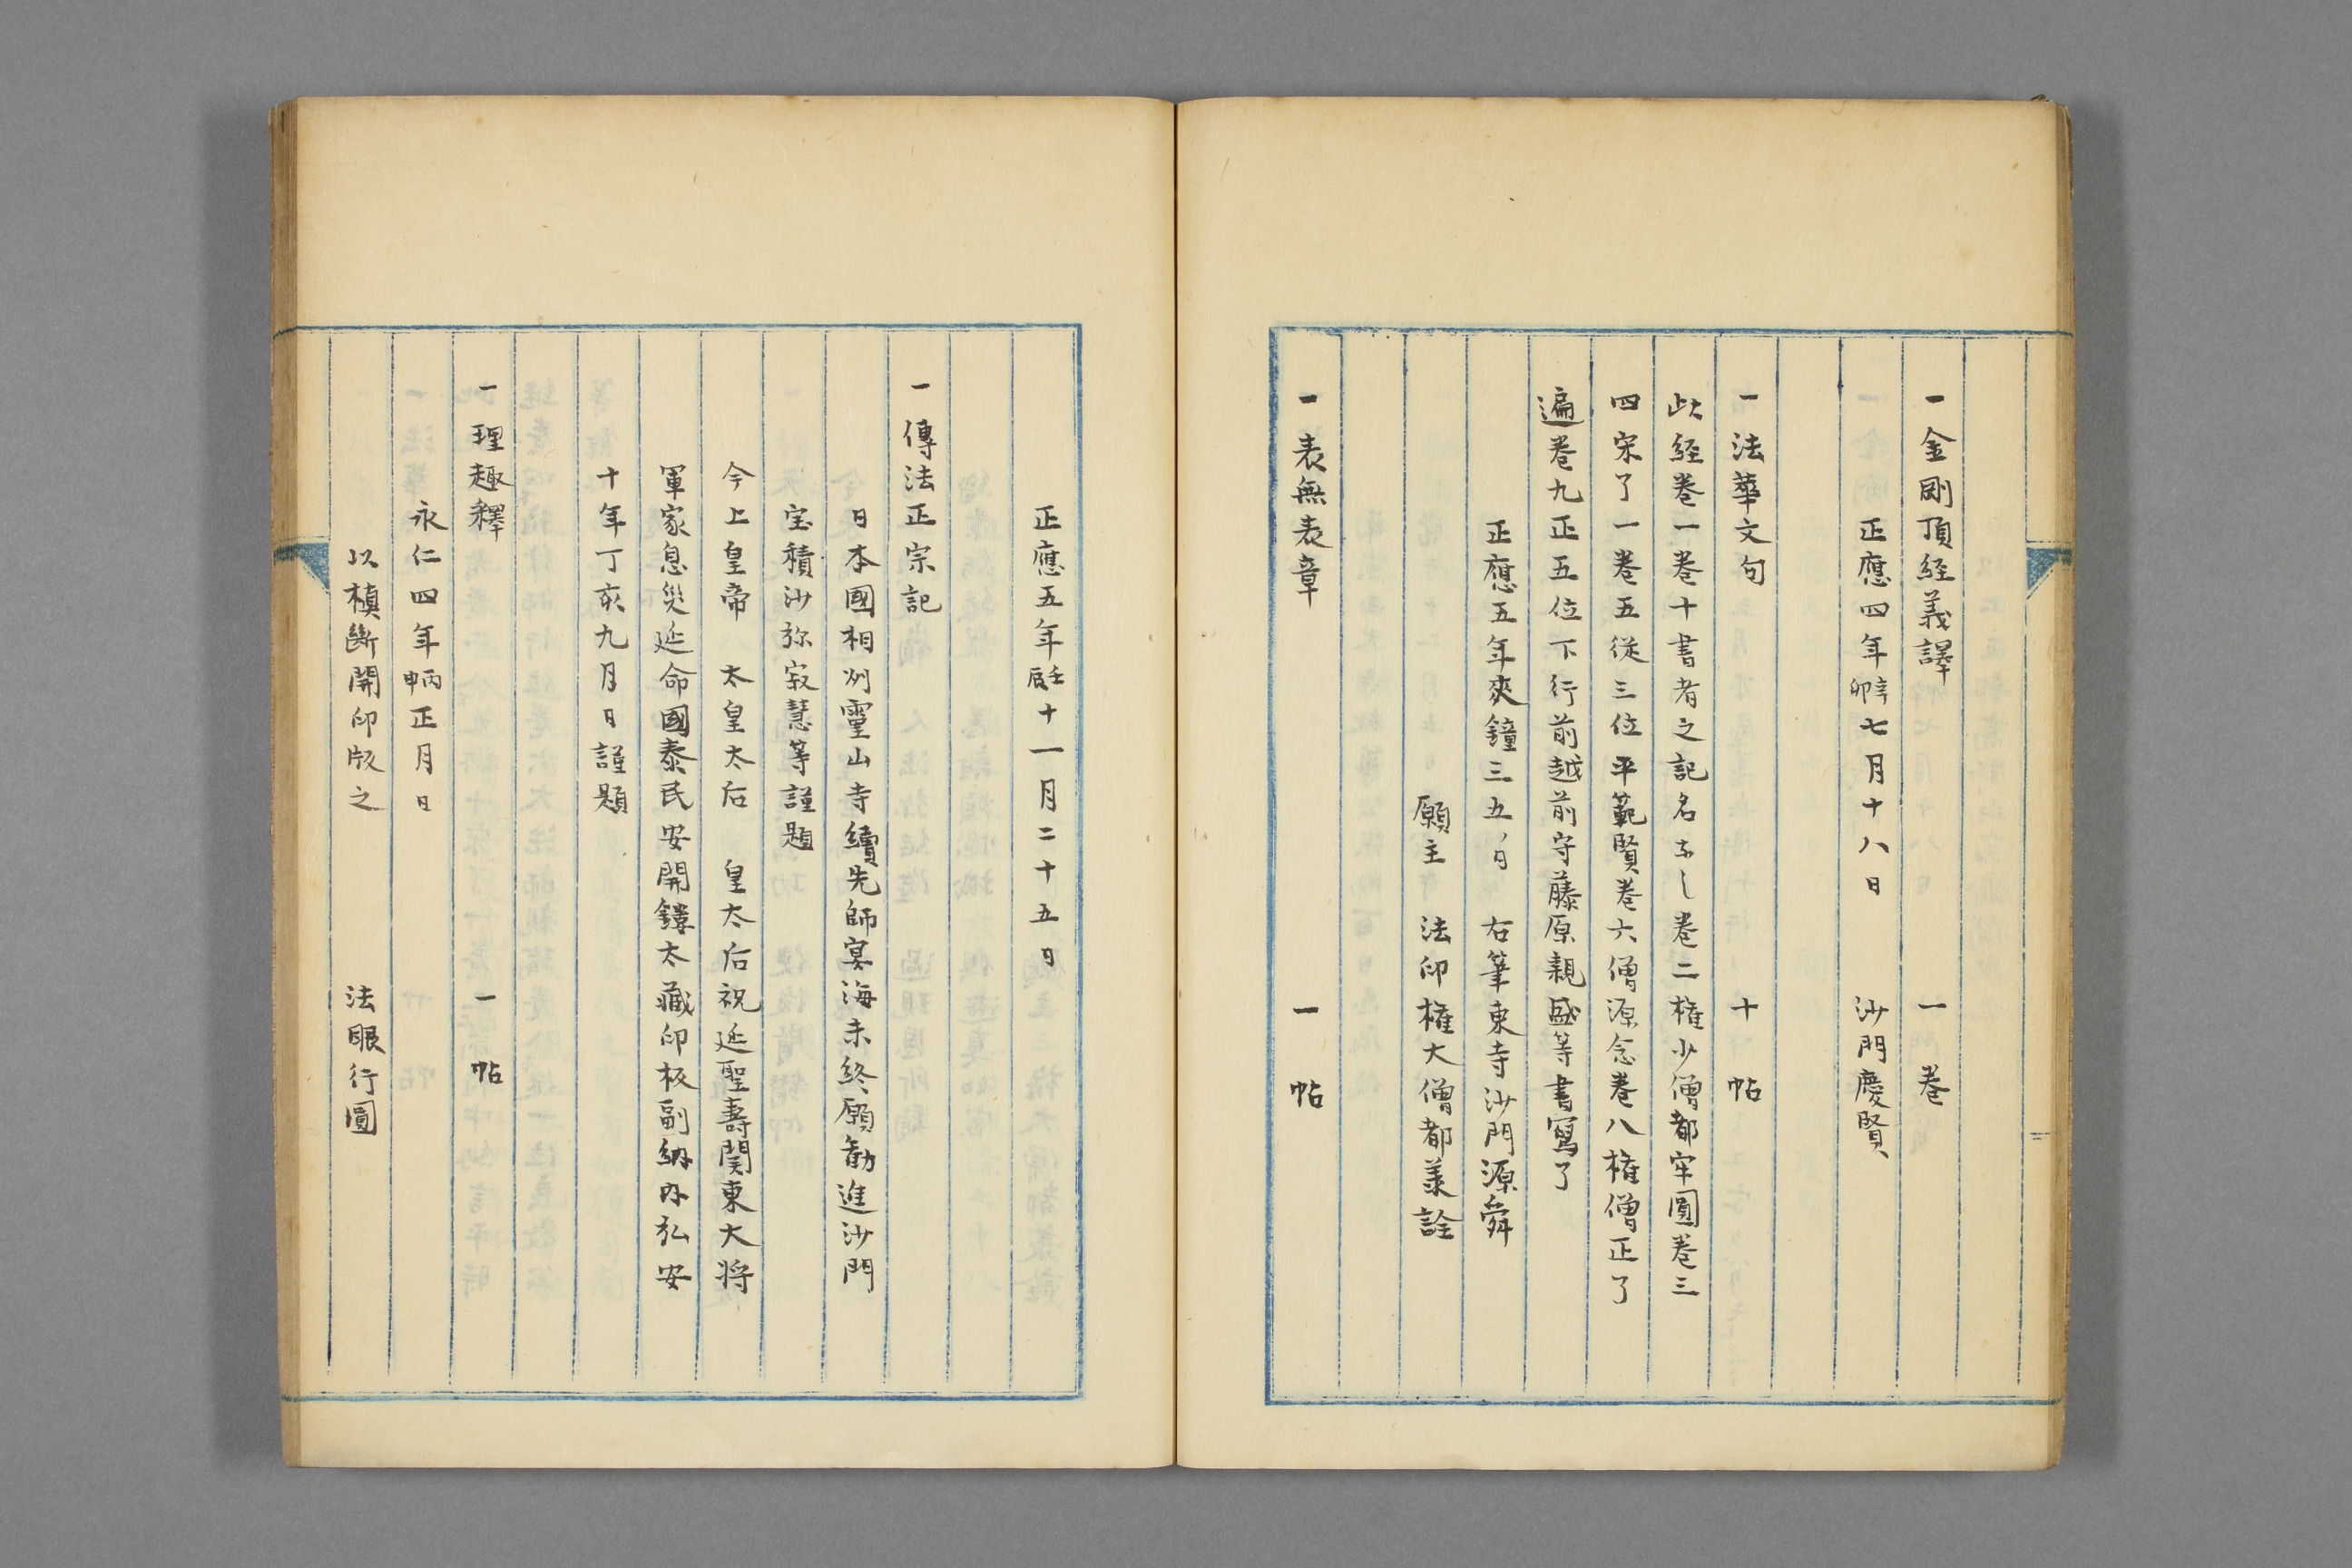 一金剛頂経義譯　一巻
正應四年辛卯七月十八日　沙門慶賢
一法華文句　十帖
此経巻一巻十書者之記名なし巻二権少僧都牢圓巻三
四宋了一巻五従三位平範賢巻六僧源念巻八権僧正了
遍巻九正五位下行前越前守藤原親盛等書寫了
正應五年夾鐘三五ノ日　右筆東寺沙門源舜
願主　法印権大僧都羕詮
一表無表章　一帖
正應五年壬辰十一月二十五日
一傳法正宗記
日本國相州靈山寺續先師宴海未終願勧進沙門
宝積沙弥寂慧等謹題
今上皇帝　太皇太后　皇太后祝延聖壽関東大将
軍家息災延命國泰民安開鏤大藏印板副納内弘安
十年丁亥九月日謹題
一理趣釋　一帖
永仁四年丙申正月日
以槙断開印版之　法眼行圓